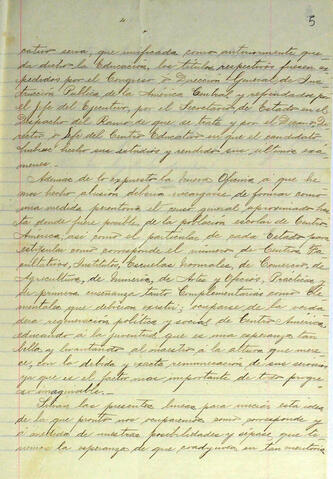 5
cativo seria, que unificada como anteriormente que-
da dicho la Educación, los títulos respectivos fuesen ex-
pedidos por el Congreso o Dirección General de Ins-
trucción Pública de la América Central y refrendados por
el Jefe del Ejecutivo, por el Secretario de Estado en el
Despacho del Ramo de que se trata y por el Decano Di-
rector o Jefe del Centro Educativo en que el candidato
hubiese hecho sus estudios y rendido sus últimos exá-
menes.
Además de lo expuesto la misma Oficina á que he-
mos hecho alusión debería encargarse de formar como
una medida perentoria el censo general aproximado has-
ta donde fuere posible, de la población escolar de Centro
América, así como el particular de cada Estado para
estipular como corresponde el número de Centros Fa-
cultativos, Institutos, Escuelas Normales, de Comercio, de
Agricultura, de Minería, de Artes y Oficios, Prácticas y
de primera enseñanza tanto Complementarias como Ele-
mentales que debieran existir; ocuparse de la verda-
dera regeneración política y social de Centro América
educando á la juventud que es una esperanza tan
bella y levantando al maestro á la altura que mere-
ce, con la debida y exacta remuneración de sus servicios
ya que es el factor mas importante de todo progre-
so imaginable.
Sirvan las presentes líneas para iniciar esta idea
de la que pronto nos ocuparemos como corresponde y
á medida de nuestras posibilidades y sépase que te-
nemos la esperanza de que coadyuven en tan meritoria